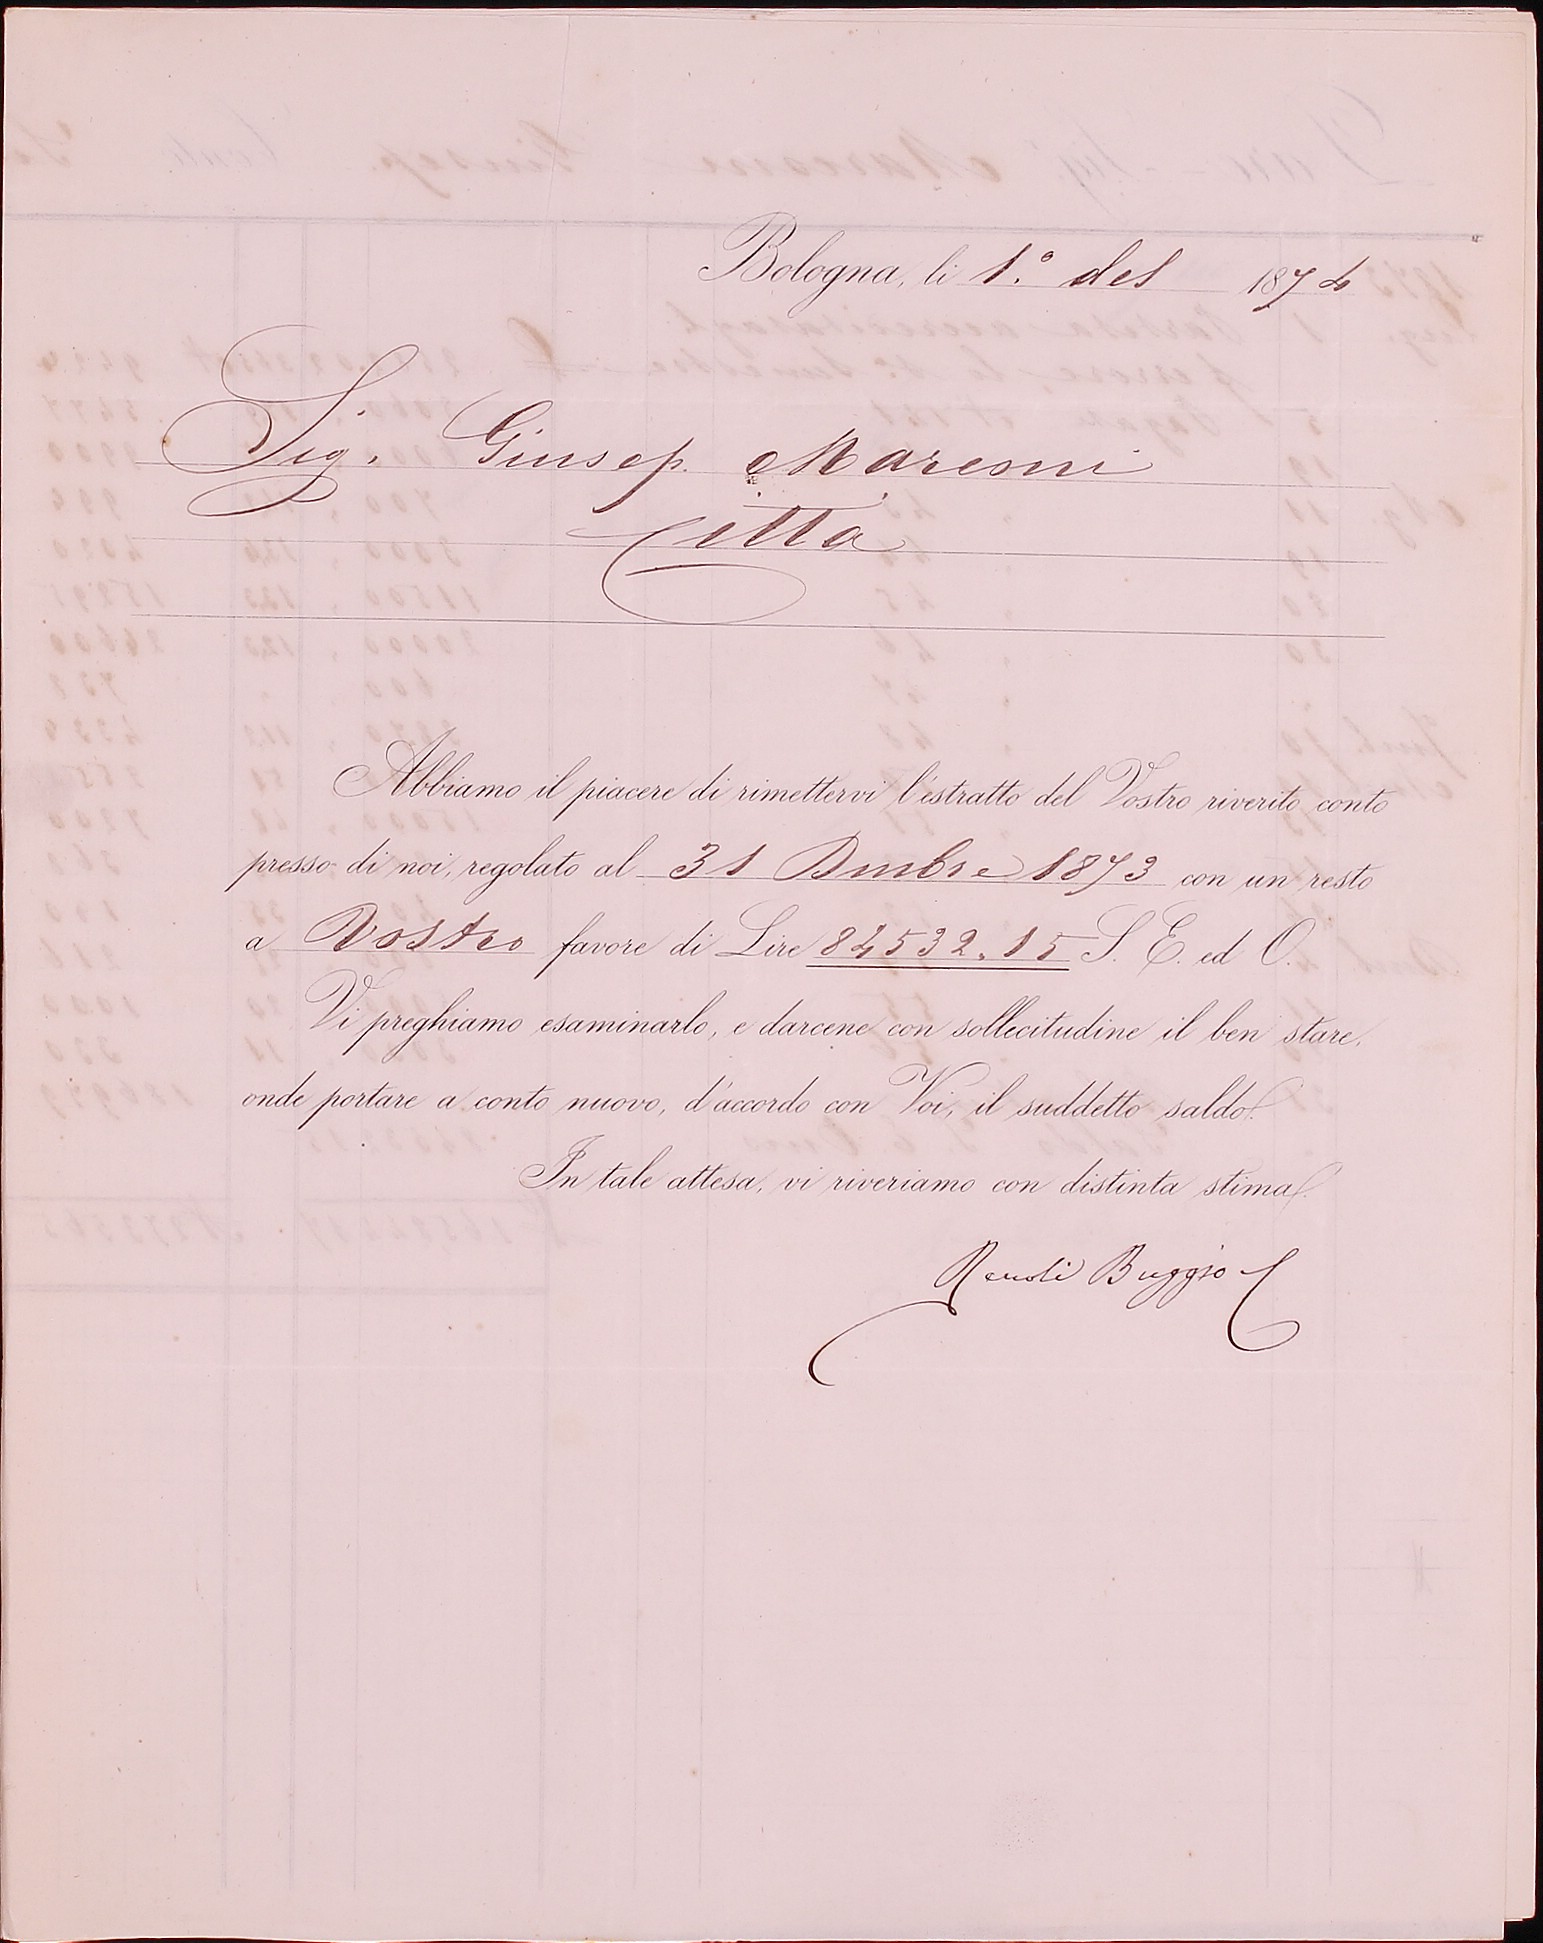 Bologna, li 1.º del 1874
Sig. Giusep. Marconi
Città
Abbiamo il piacere di rimettervi l'estratto del Vostro riverito conto
presso di noi, regolato al 31 Dmbre 1873 con un resto
a Vostro favore di Lire 84532.15 S. E. ed O.
Vi preghiamo esaminarlo, e darcene con sollecitudine il ben stare,
onde portare a conto nuovo, d'accordo con Voi, il suddetto saldo.
In tale attesa, vi riveriamo con distinta stima.
Renoli Buggio